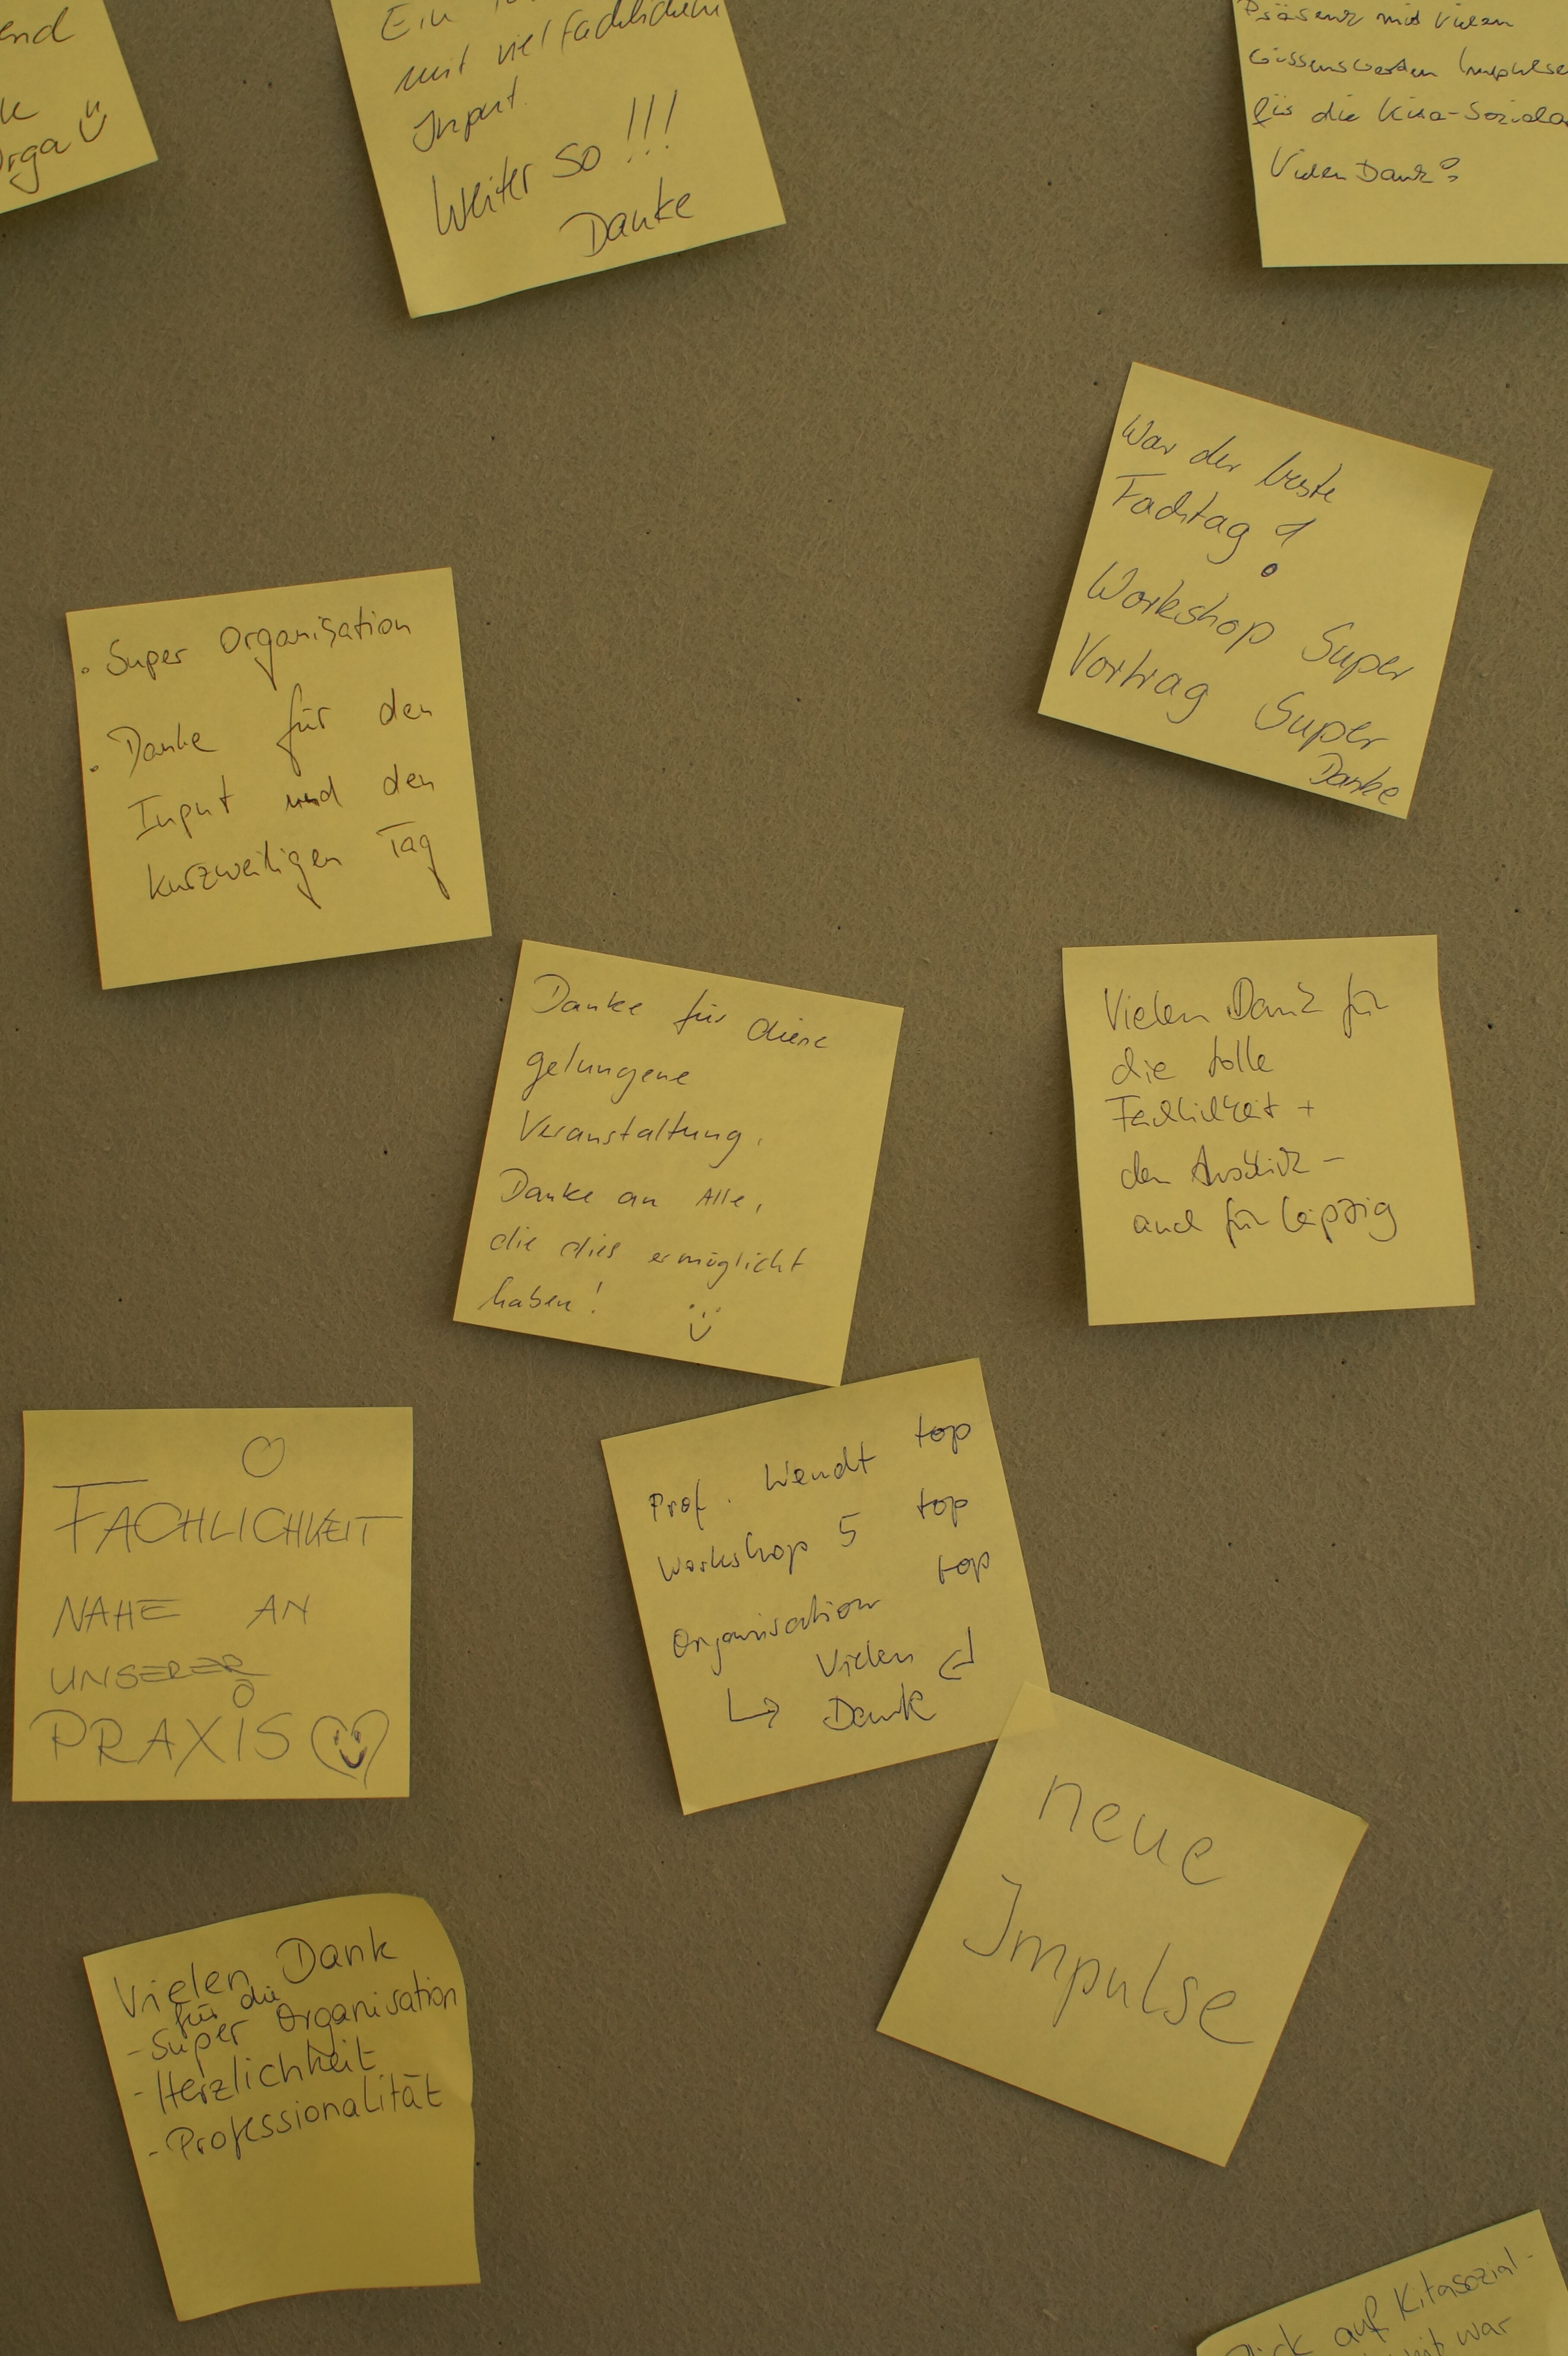 end
Orga
Ein
mit viel fachlichem
Input.
Weiter so !!!
Danke
Präsenz mit vielen
wissenswerten Impulsen
für die Kita-Sozial
Vielen Dank!
War der beste
Fachtag!
Workshop Super
Vortrag Super
Danke
· Super Organisation
· Danke für den
Input und den
kurzweiligen Tag
Danke für diese
gelungene
Veranstaltung.
Danke an Alle,
die dies ermöglicht
haben!
Vielen Dank für
die tolle
Fachlichkeit +
den Ausblick –
auch für Leipzig
FACHLICHKEIT
NAHE AN
UNSERER
PRAXIS
Prof. Wendt top
Workshop 5 top
Organisation top
Vielen
↳ Dank
neue
Impulse
Vielen Dank
für die
- Super Organisation
- Herzlichkeit
- Professionalität
auf Kitasozial-
war